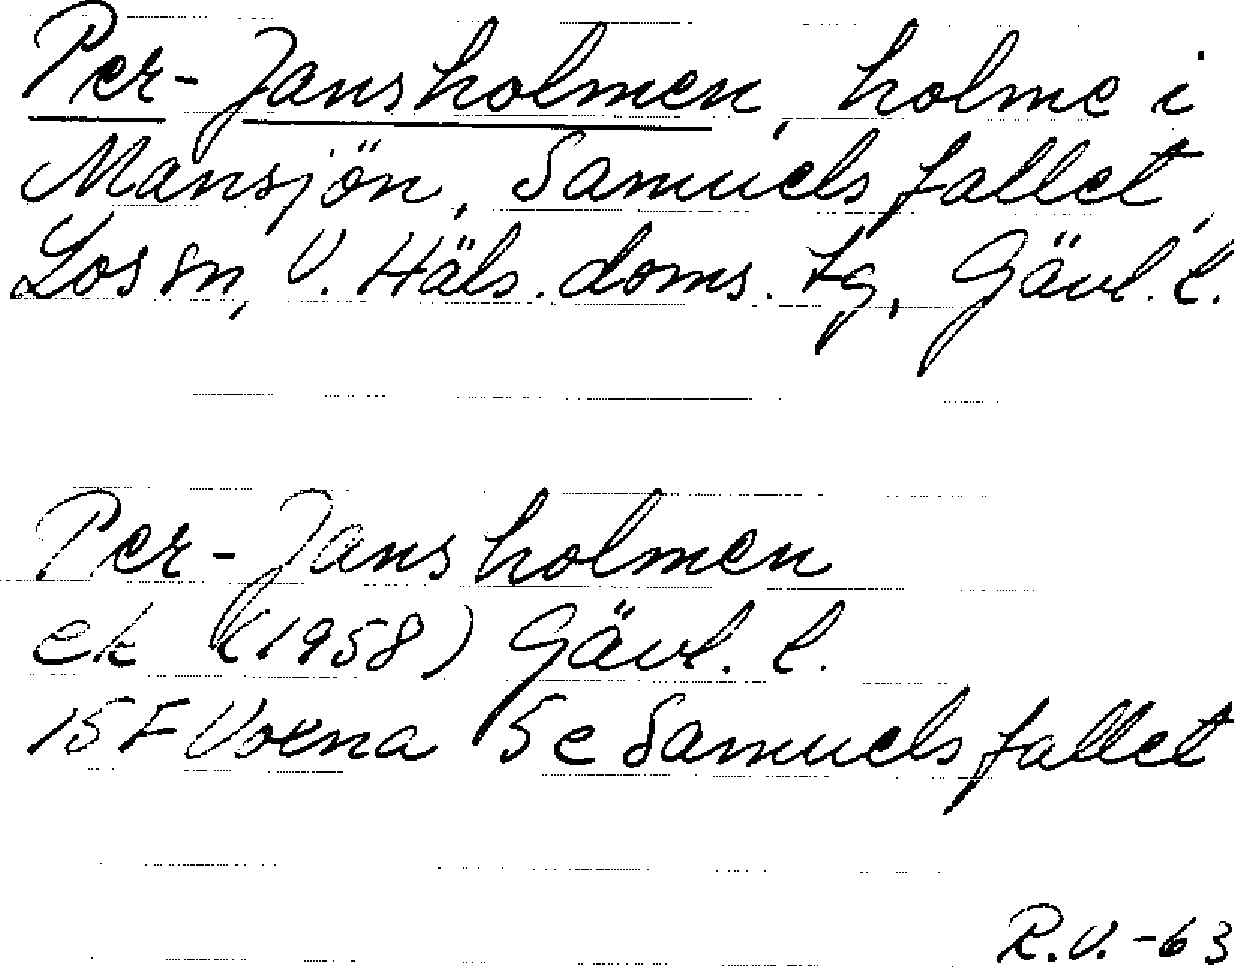 Per-Jansholmen, holme i
Mansjön, Samuelsfallet,
Los sn, V. Häls. doms. tg, Gävl. l.
Per-Jansholmen
ek (1958) Gävl. l.
15F Voxna 5e Samuelsfallet
R.V. -63